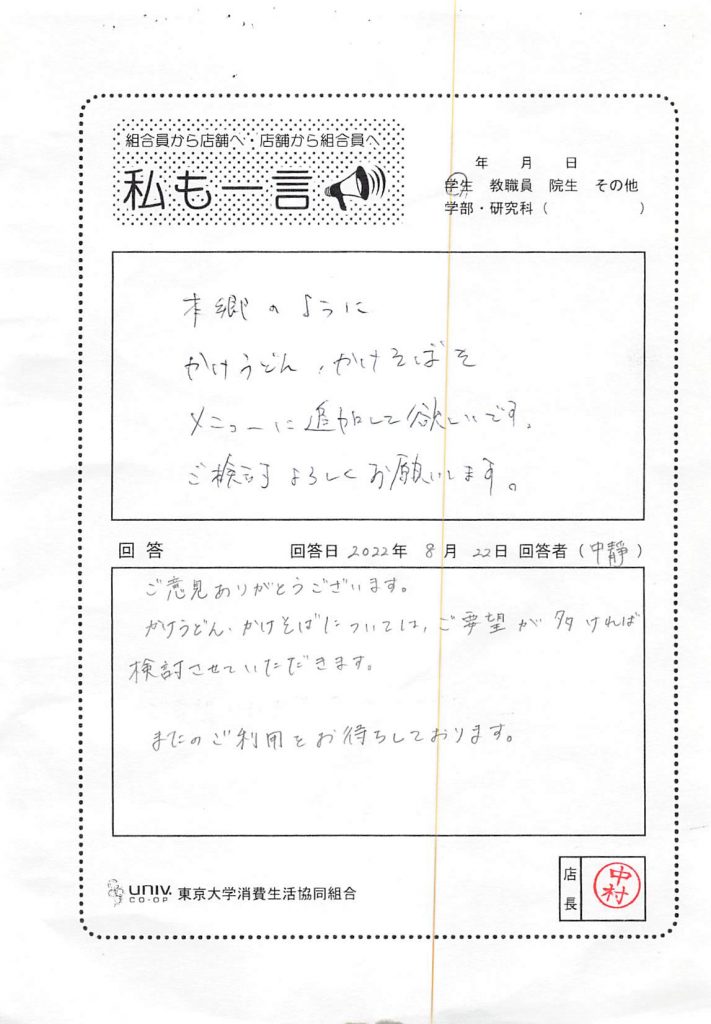 組合員から店舗へ・店舗から組合員へ
私も一言
年 月 日
学生 教職員 院生 その他
学部・研究科( )
本郷のように
かけうどん、かけそばを
メニューに追加して欲しいです。
ご検討よろしくお願いします。
回答 回答日 2022年 8月 22日 回答者(中靜)
ご意見ありがとうございます。
かけうどん、かけそばについては、ご要望が多ければ
検討させていただきます。
またのご利用をお待ちしております。
UNIV. CO-OP 東京大学消費生活協同組合
店長 中村